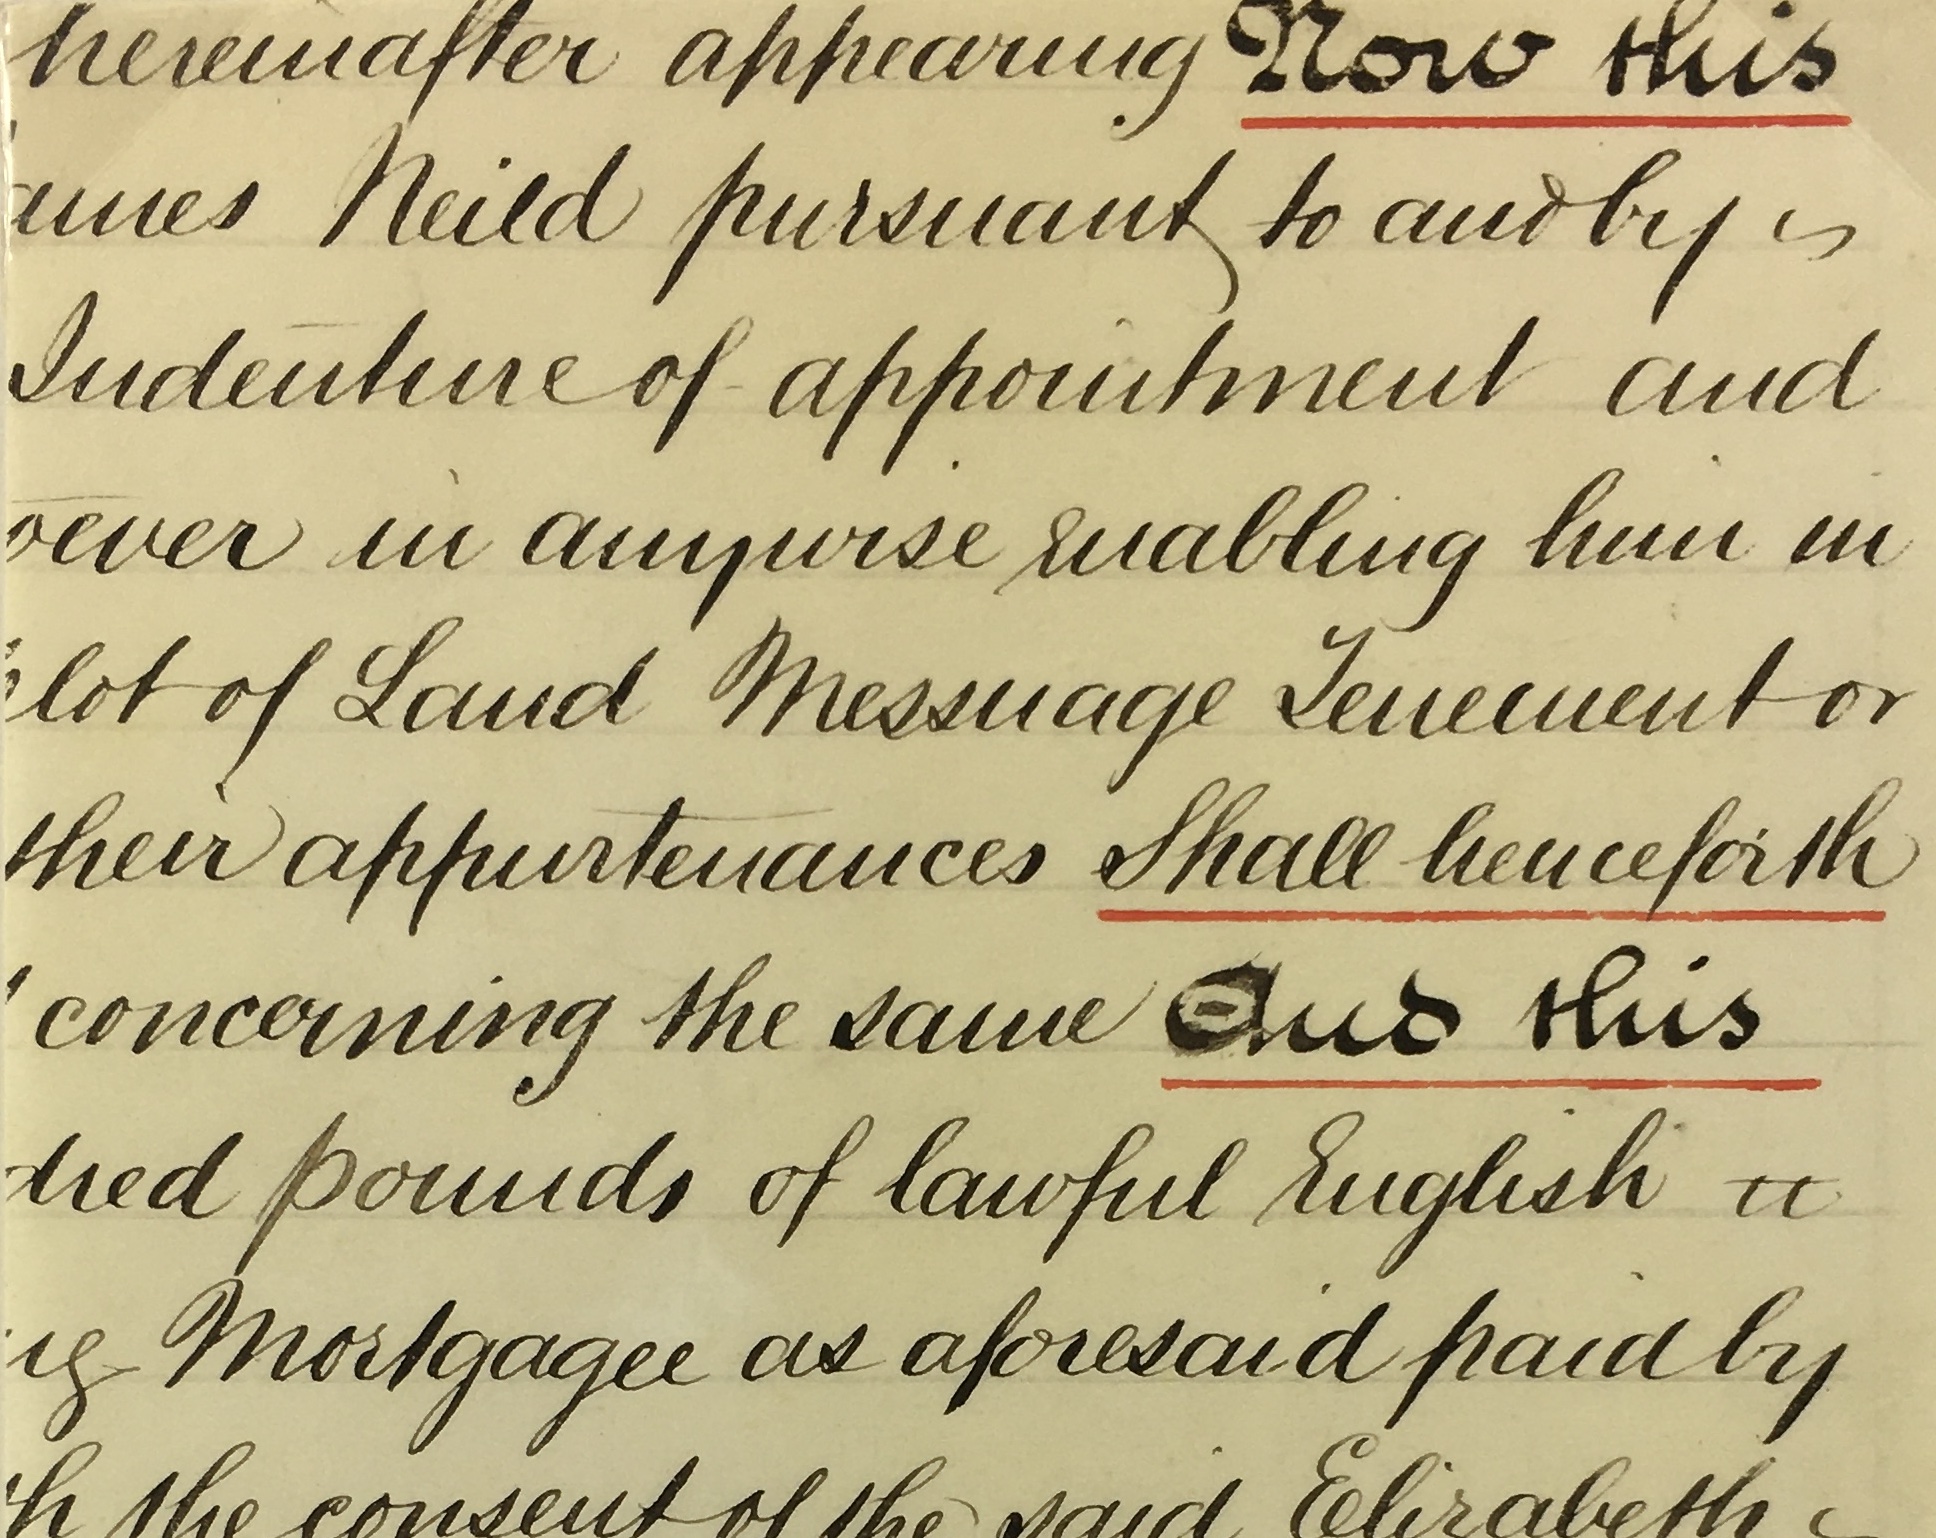 hereinafter appearing Now this
ames Neild pursuant to and by
Indenture of appointment and
oever in anywise enabling him in
plot of Land Messuage Tenement or
their appurtenances Shall henceforth
concerning the same And this
dred pounds of lawful English
Mortgagee as aforesaid paid by
th the consent of the said Elizabeth